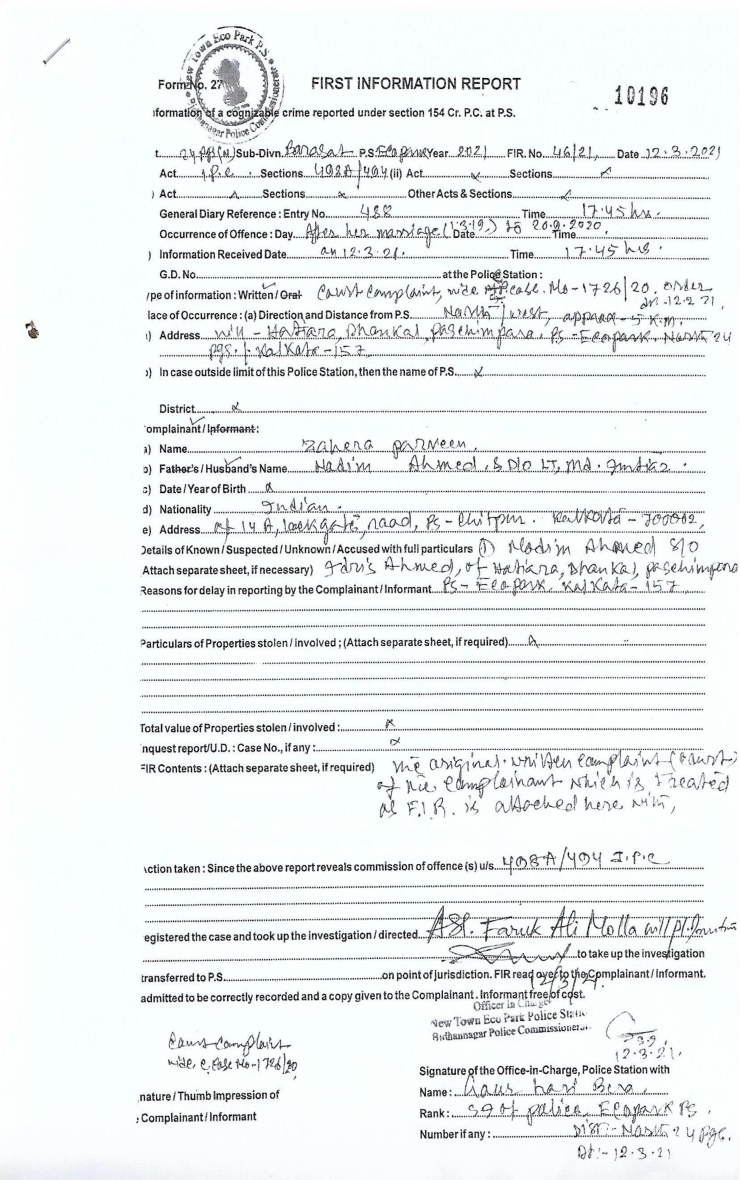 New Town Eco Park P.S.
Bidhannagar Police Commissionerate
Form No. 27
FIRST INFORMATION REPORT
10196
nformation of a cognizable crime reported under section 154 Cr. P.C. at P.S.
t. 24 Pgs (N) Sub-Divn. Barasat P.S. Ecopark Year 2021 FIR. No. 46/21, Date 12.3.2021
Act I.P.C. Sections 498A/494 (ii) Act x Sections
) Act Sections x Other Acts & Sections
General Diary Reference : Entry No. 488 Time 17.45 hrs.
Occurrence of Offence : Day. After her marriage (1.3.19) Date to 20.9.2020 Time
) Information Received Date on 12.3.21. Time 17.45 hrs.
G.D. No. at the Police Station :
ype of information : Written / Oral Court Complaint, vide case. No-1726/20. order dt. 12.2.21,
lace of Occurrence : (a) Direction and Distance from P.S. North / west, approx - 5 K.m.
) Address vill - Hatiara, Dhankal, paschimpara. PS - Ecopark. North 24
pgs. Kolkata - 157
) In case outside limit of this Police Station, then the name of P.S. x
District x
omplainant / Informant:
a) Name Zahera parveen.
o) Father's / Husband's Name Nadim Ahmed, & D/O LT, Md. Imtiaz.
c) Date / Year of Birth x
d) Nationality Indian.
e) Address of 14 A, lockgate, road, PS - Chitpur. Kolkata - 700002,
Details of Known / Suspected / Unknown / Accused with full particulars (1) Nadim Ahmed S/O
Attach separate sheet, if necessary) Idris Ahmed, of Hatiara, Dhankal, paschimpara
Reasons for delay in reporting by the Complainant / Informant PS - Ecopark, Kolkata - 157
Particulars of Properties stolen / involved ; (Attach separate sheet, if required)
Total value of Properties stolen / involved : x
nquest report/U.D. : Case No., if any : x
FIR Contents : (Attach separate sheet, if required) The original written complaint (court)
of the complainant which is treated
as F.I.R. is attached here with,
Action taken : Since the above report reveals commission of offence (s) u/s. 498A/494 I.P.C
egistered the case and took up the investigation / directed. ASI. Faruk Ali Molla will pl.
to take up the investigation
transferred to P.S. on point of jurisdiction. FIR read over to the Complainant / Informant.
12/3/21
admitted to be correctly recorded and a copy given to the Complainant. Informant free of cost.
Officer in Charge
New Town Eco Park Police Station
Bidhannagar Police Commissionerate
Court Complaint
vide, C. Case No-1726/20
12.3.21.
Signature of the Office-in-Charge, Police Station with
nature / Thumb Impression of
Name : Gaur hari Bera.
Complainant / Informant
Rank : SI of police, Ecopark PS.
Number if any : Dist - North 24 Pgs.
Dt :- 12.3.21